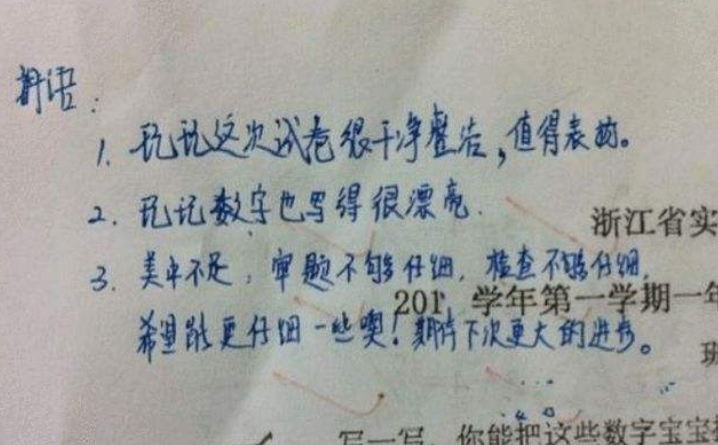 评语：
1. 玩玩这次试卷很干净整洁，值得表扬。
2. 玩玩数字也写得很漂亮.
浙江省实
3. 美中不足，审题不够仔细，检查不够仔细，
201 学年第一学期一年
希望能更仔细一些噢！期待下次更大的进步。
班
写一写，你能把这些数字宝宝